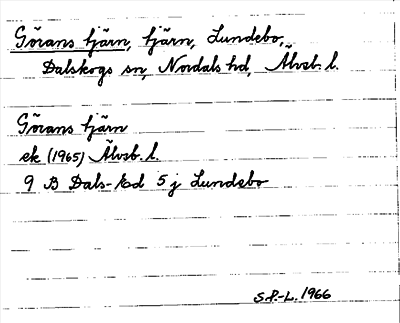 Görans tjärn, tjärn, Lundebo,
Dalskogs sn, Nordals hd, Älvsb. l.
Görans tjärn
ek (1965) Älvsb. l.
9 B Dals-Ed 5 j Lundebo
S.P.-L. 1966